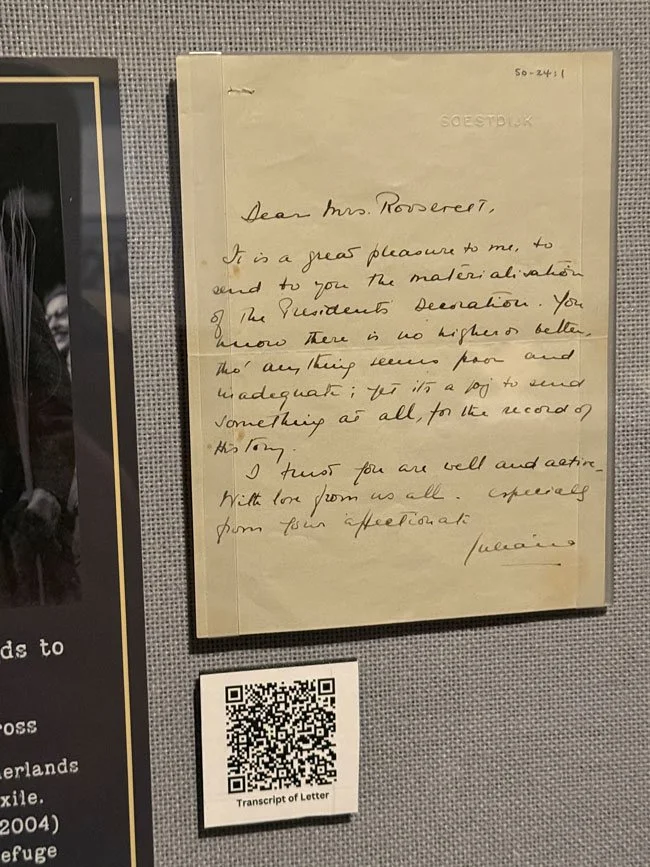 ds to
ross
erlands
xile.
2004)
efuge
50-24:1
SOESTDIJK
Dear Mrs. Roosevelt,
It is a great pleasure to me, to
send to you the materialisation
of the President's Decoration. You
know there is no higher or better,
tho' anything seems poor and
inadequate; yet it's a joy to send
something at all, for the record of
History.
I trust you are well and active.
With love from us all. especially
from your affectionate
Juliana
Transcript of Letter